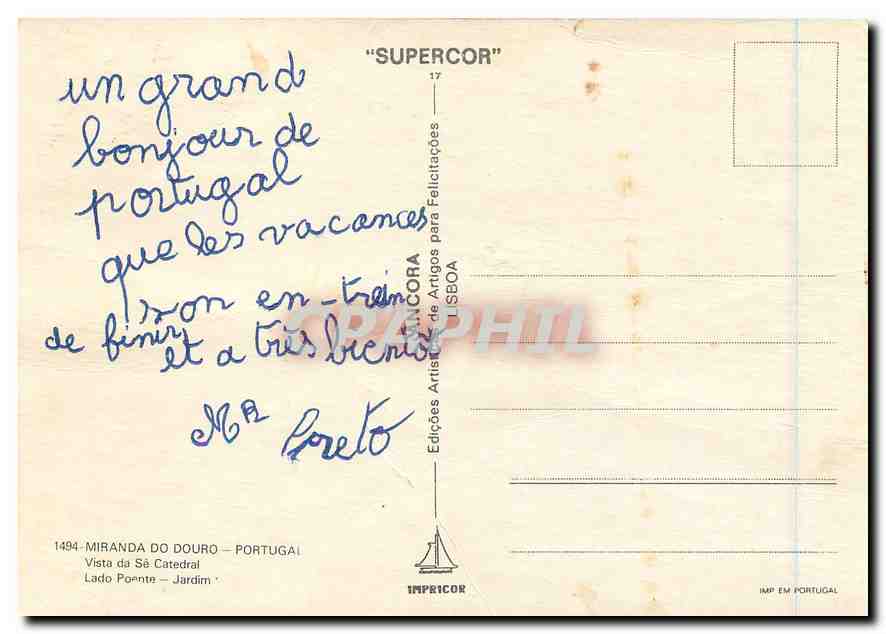 "SUPERCOR"
17
un grand
bonjour de
portugal
que les vacances
son en-train
de finir
et a très bientot
Mª Loreto
ÂNCORA
Edições Artísticas de Artigos para Felicitações
LISBOA
CPAPHIL
1494-MIRANDA DO DOURO — PORTUGAL
Vista da Sé Catedral
Lado Poente — Jardim
IMPRICOR
IMP EM PORTUGAL